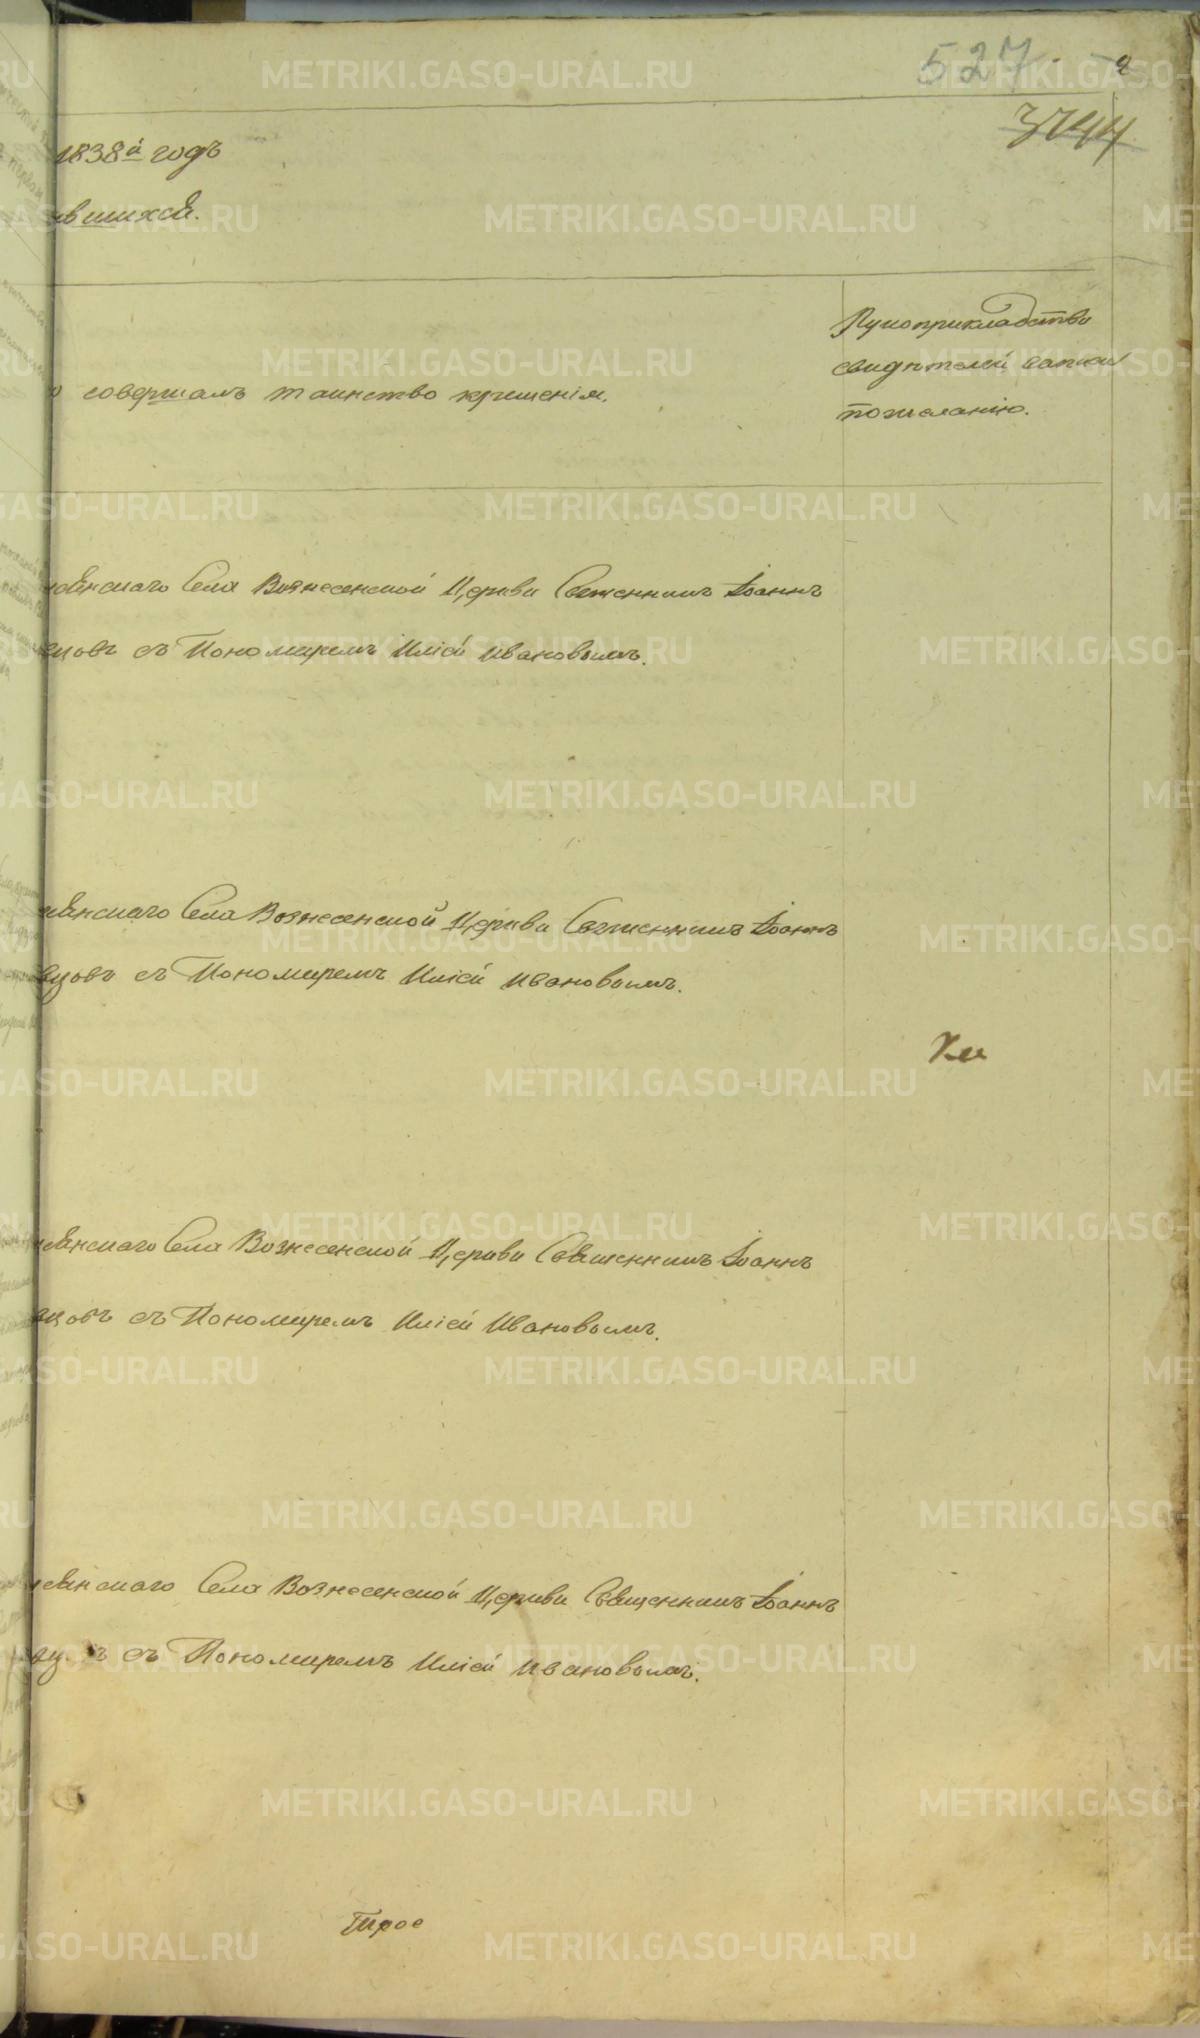 527.
3744
1838й годъ
вшихся.
совершалъ таинство крещенія.
Рукоприкладство
свидѣтелей записи
по желанію.
Села Вознесенской Церкви Священникъ Іоаннъ
съ Пономаремъ Иліей Ивановымъ.
Села Вознесенской Церкви Священникъ Іоаннъ
съ Пономаремъ Иліей Ивановымъ.
Села Вознесенской Церкви Священникъ Іоаннъ
съ Пономаремъ Иліей Ивановымъ.
Села Вознесенской Церкви Священникъ Іоаннъ
съ Пономаремъ Иліей Ивановымъ.
Трое
METRIKI.GASO-URAL.RU